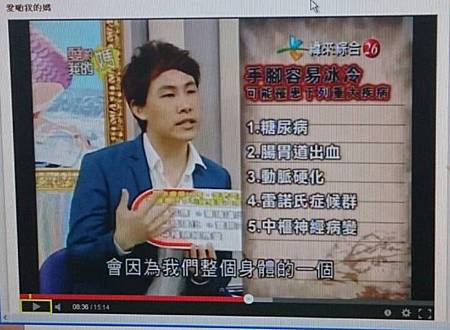 愛呦我的媽
我的媽
緯來綜合 26
手腳容易冰冷
可能罹患下列重大疾病
1.糖尿病
2.腸胃道出血
3.動脈硬化
4.雷諾氏症候群
5.中樞神經病變
會因為我們整個身體的一個
08:36 / 15:14